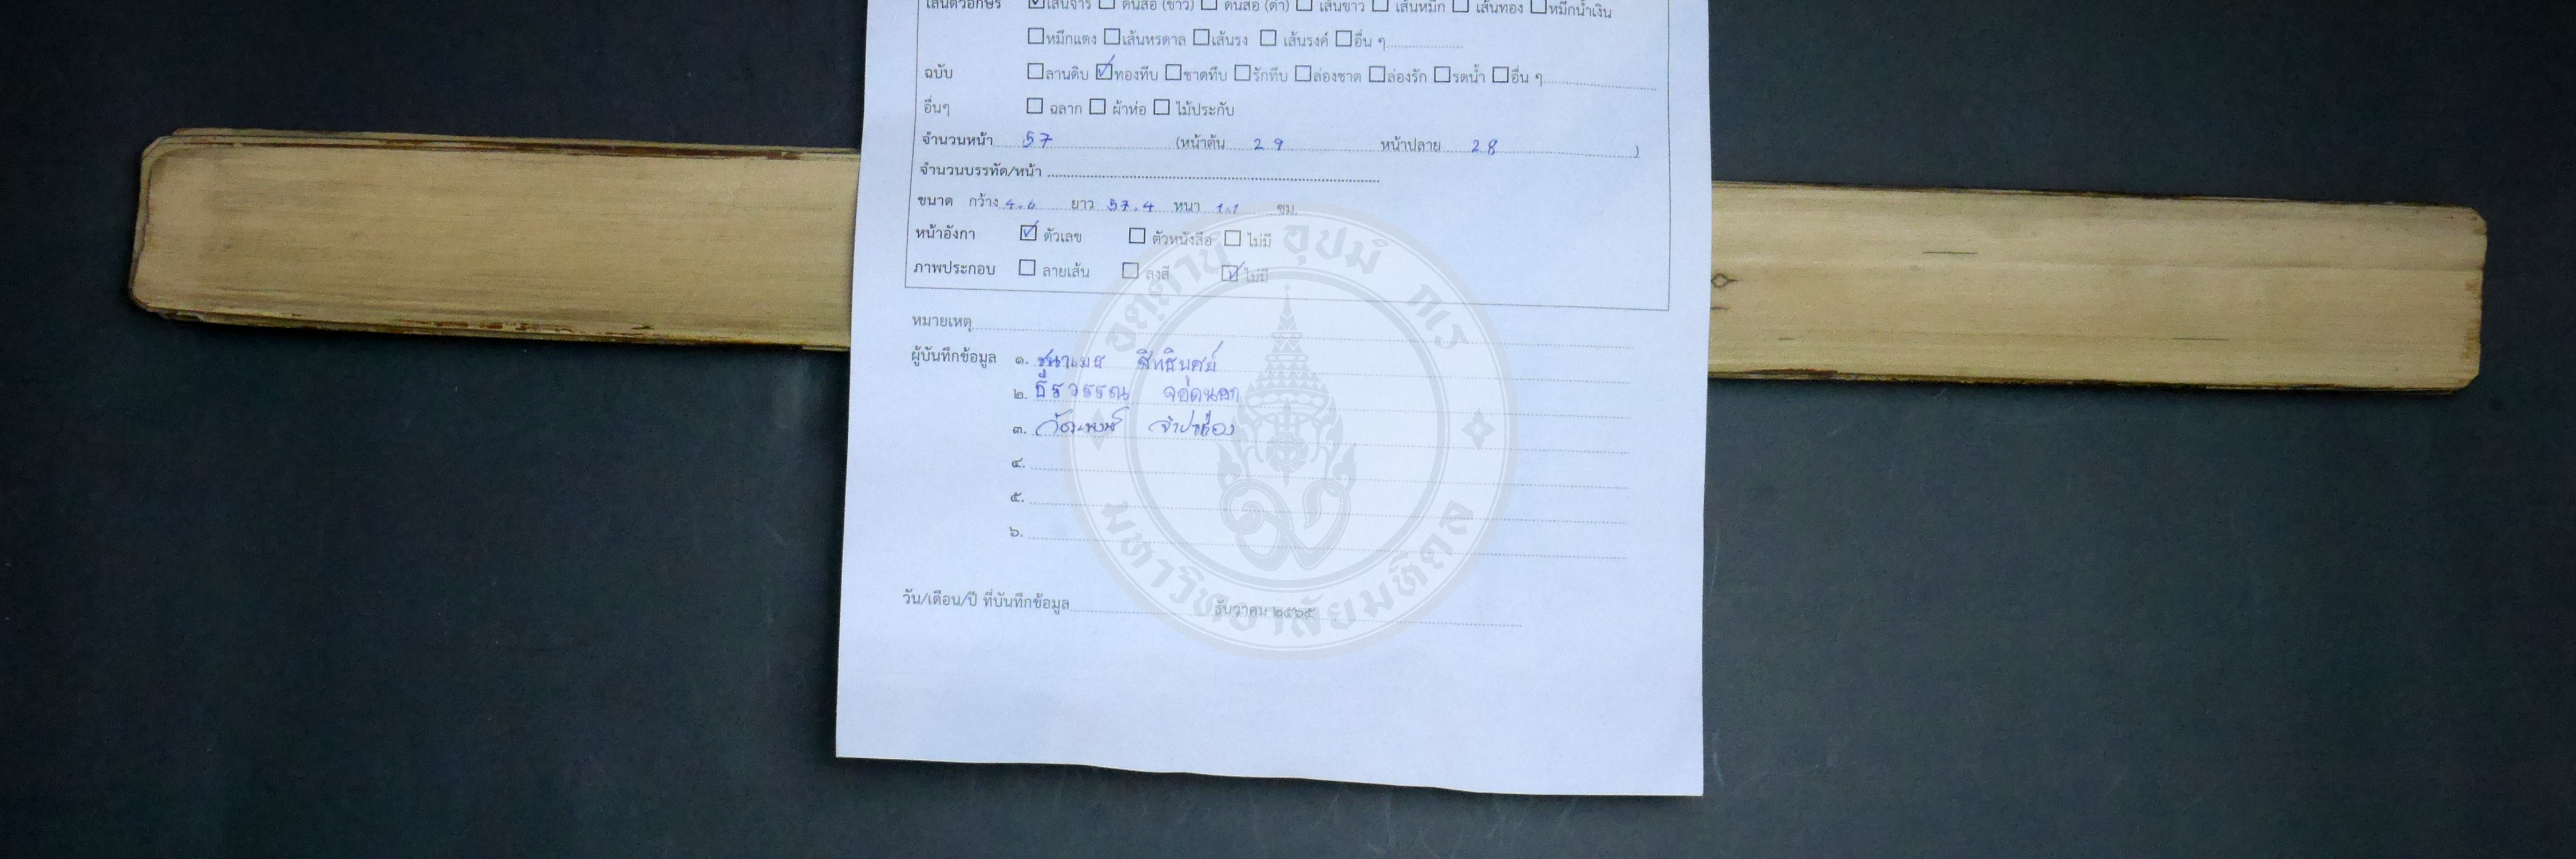 เส้นตัวอักษร ☑เส้นจาร ☐ ดินสอ (ขาว) ☐ ดินสอ (ดำ) ☐ เส้นขาว ☐ เส้นหมึก ☐ เส้นทอง ☐หมึกน้ำเงิน
☐หมึกแดง ☐เส้นหรดาล ☐เส้นรง ☐ เส้นรงค์ ☐อื่น ๆ
ฉบับ ☐ลานดิบ ☑ทองทึบ ☐ชาดทึบ ☐รักทึบ ☐ล่องชาด ☐ล่องรัก ☐รดน้ำ ☐อื่น ๆ
อื่นๆ ☐ ฉลาก ☐ ผ้าห่อ ☐ ไม้ประกับ
จำนวนหน้า 57 (หน้าต้น 29 หน้าปลาย 28 )
จำนวนบรรทัด/หน้า
ขนาด กว้าง 4.6 ยาว 57.4 หนา 1.1 ซม.
หน้าอังกา ☑ ตัวเลข ☐ ตัวหนังสือ ☐ ไม่มี
ภาพประกอบ ☐ ลายเส้น ☐ ลงสี ☑ ไม่มี
หมายเหตุ
ผู้บันทึกข้อมูล ๑.
๒. ธีรวรรณ
๓.
๔.
๕.
๖.
วัน/เดือน/ปี ที่บันทึกข้อมูล ธันวาคม ๒๕๖๕
อตฺตานํ อุปมํ กเร
มหาวิทยาลัยมหิดล